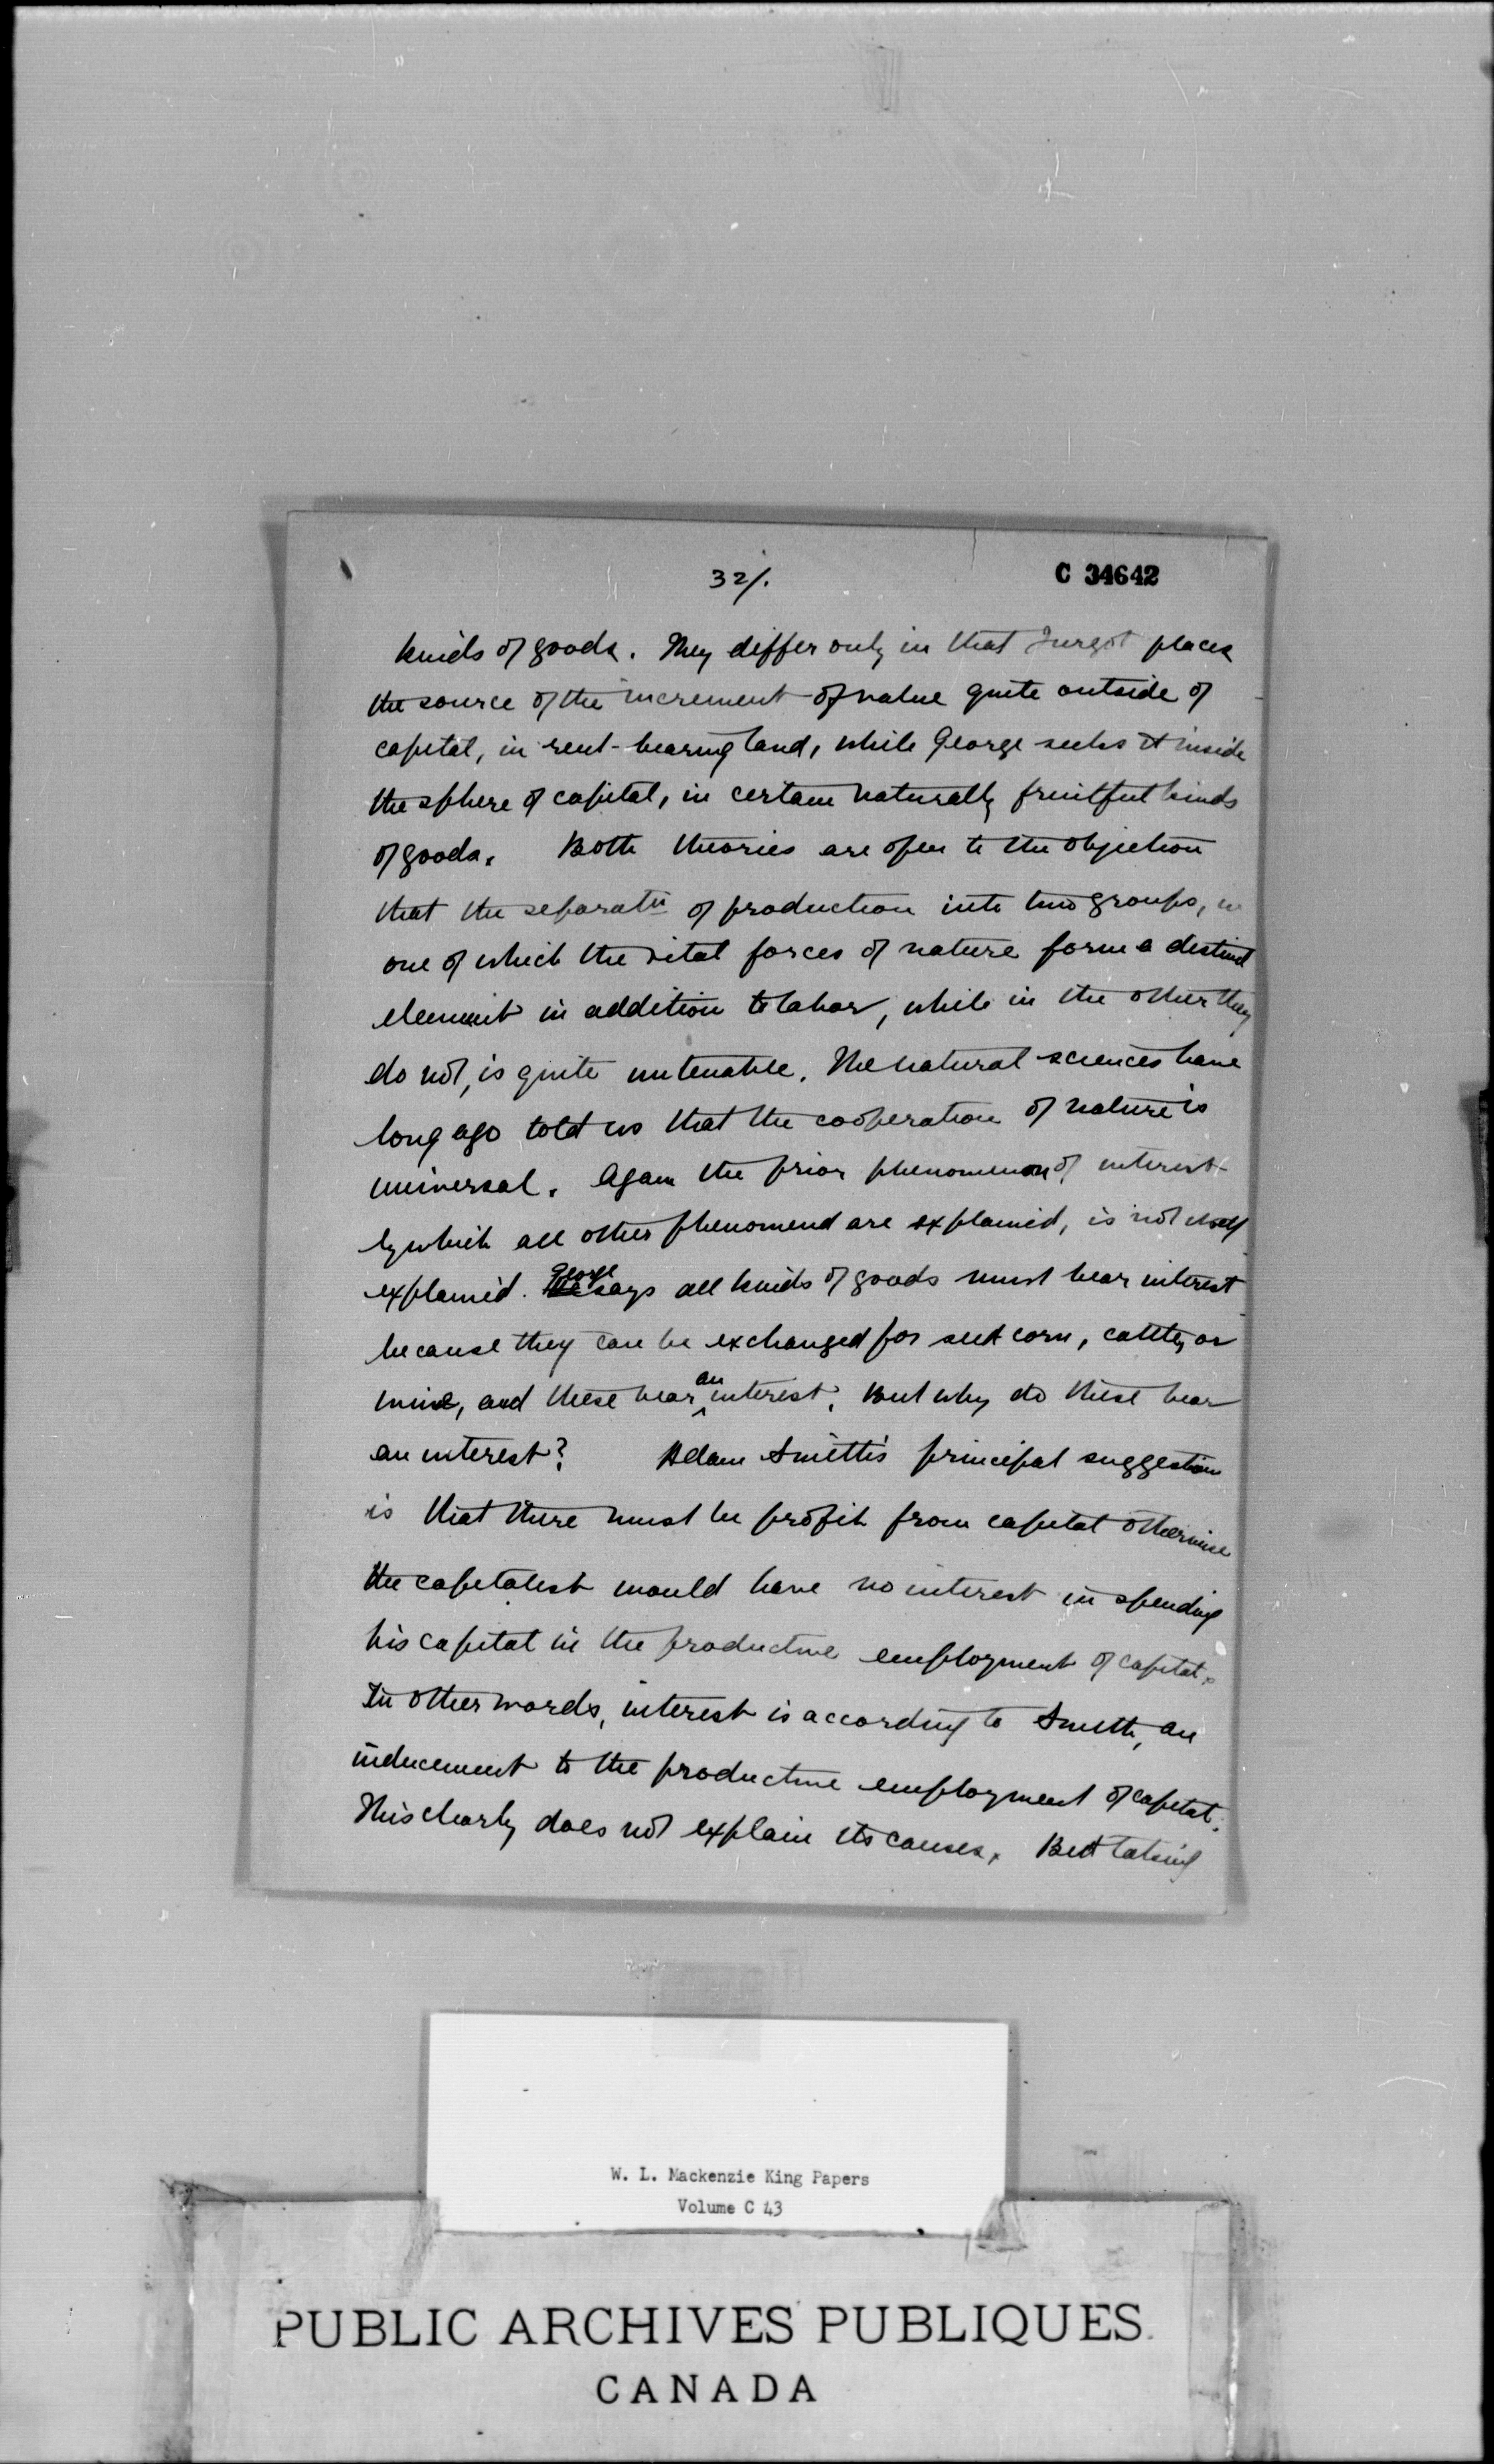 32/.
C 34642
kinds of goods. They differ only in that Turgot places
the source of the increment of value quite outside of
capital, in rent-bearing land, while George seeks it inside
the sphere of capital, in certain naturally fruitful kinds
of goods. Both theories are open to the objection
that the separatn of production into two groups, in
one of which the vital forces of nature form a distinct
element in addition to labor, while in the other they
do not, is quite untenable. The natural sciences have
long ago told us that the cooperation of nature is
universal. Again the prior phenomenon of interest
by which all other phenomena are explained, is not itself
explained. He George says all kinds of goods must bear interest
because they can be exchanged for seed corn, cattle, or
wine, and these bear an interest. But why do these bear
an interest? Adam Smith's principal suggestion
is that there must be profit from capital otherwise
the capitalist would have no interest in spending
his capital in the productive employment of capital.
In other words, interest is according to Smith, an
inducement to the productive employment of capital.
This clearly does not explain its causes. But taking
W. L. Mackenzie King Papers
Volume C 43
PUBLIC ARCHIVES PUBLIQUES
CANADA